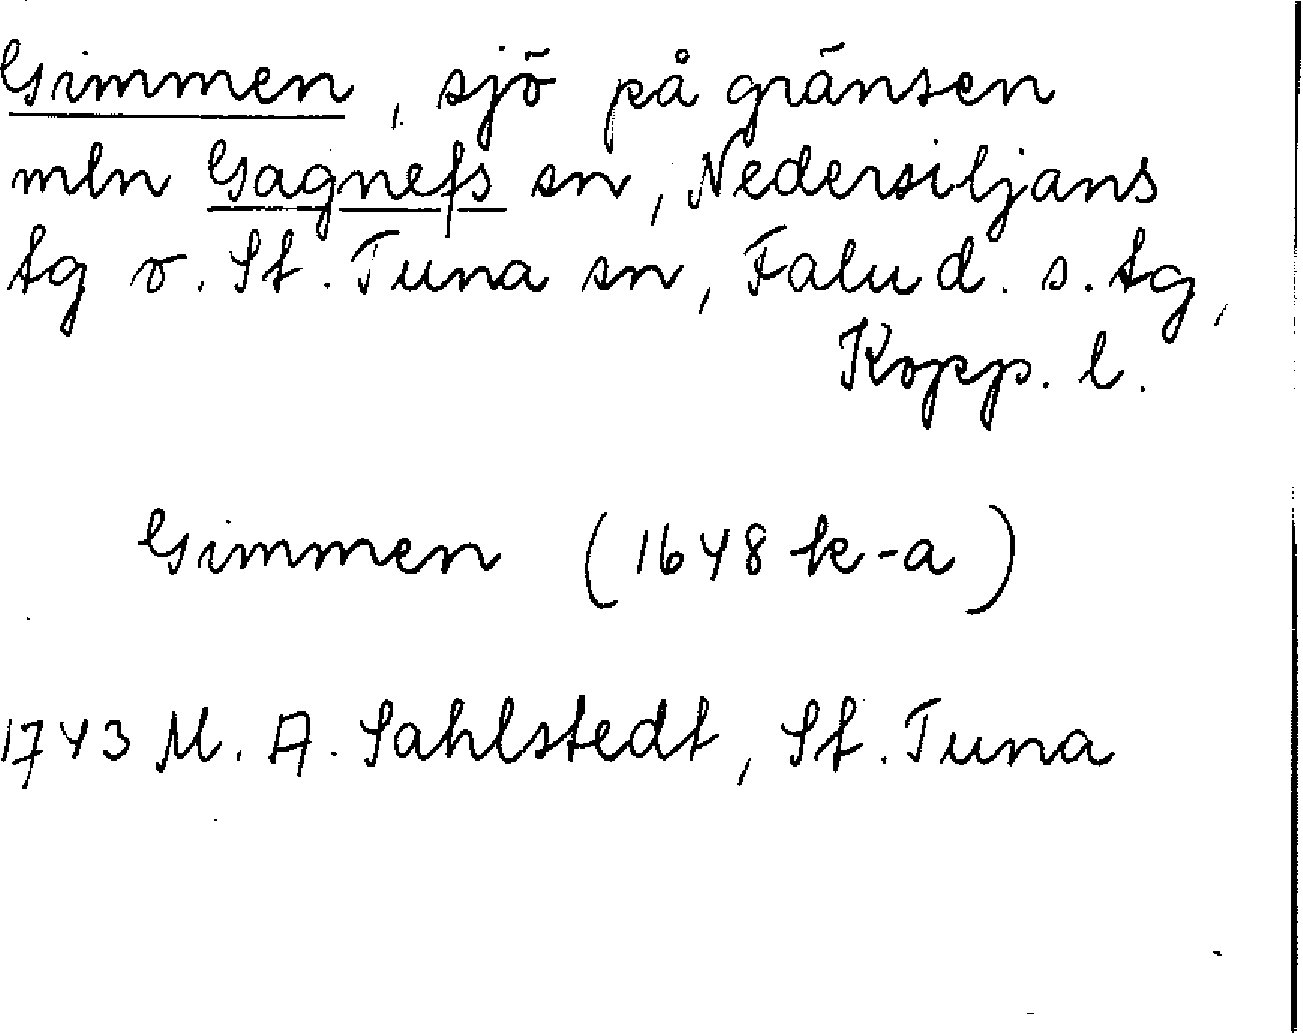 Gimmen, sjö på gränsen
mln Gagnefs sn, Nedersiljans
tg o. St. Tuna sn, Falu d. s. tg,
Kopp. l.
Gimmen (1648 k-a)
1743 M. A. Sahlstedt, St. Tuna